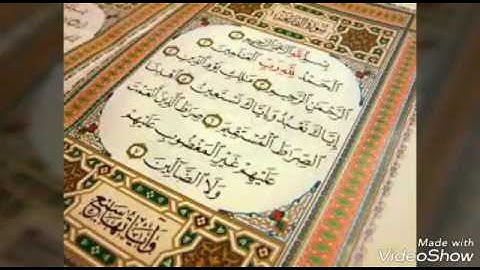 سُورَةُ الفَاتِحَةِ
بِسْمِ اللَّهِ الرَّحْمَٰنِ الرَّحِيمِ ١
الْحَمْدُ لِلَّهِ رَبِّ الْعَالَمِينَ ٢
الرَّحْمَٰنِ الرَّحِيمِ ٣ مَالِكِ يَوْمِ الدِّينِ ٤
إِيَّاكَ نَعْبُدُ وَإِيَّاكَ نَسْتَعِينُ ٥ اهْدِنَا
الصِّرَاطَ الْمُسْتَقِيمَ ٦ صِرَاطَ الَّذِينَ أَنْعَمْتَ
عَلَيْهِمْ غَيْرِ الْمَغْضُوبِ عَلَيْهِمْ
وَلَا الضَّالِّينَ ٧
وآياتها سبع
Made with
VideoShow